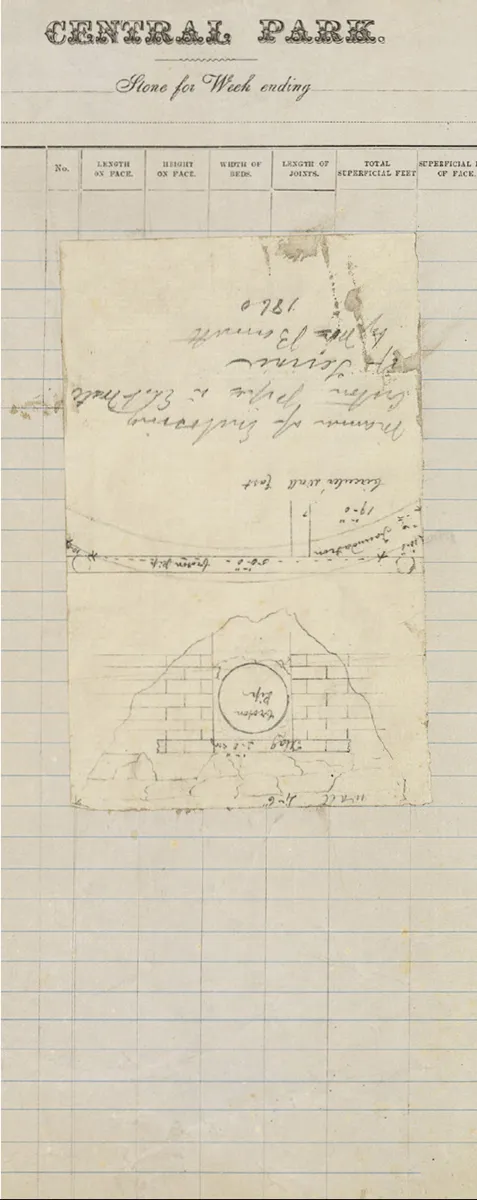 CENTRAL PARK.
Stone for Week ending
No.
LENGTH
ON FACE.
HEIGHT
ON FACE.
WIDTH OF
BEDS.
LENGTH OF
JOINTS.
TOTAL
SUPERFICIAL FEET
SUPERFICIAL
OF FACE.
Manner of Enclosing
Croton Pipe
Terrace
by
1860
Circular Wall
19-0
Foundation
50-0
Croton Pipe
Croton
Pipe
Flag
Wall